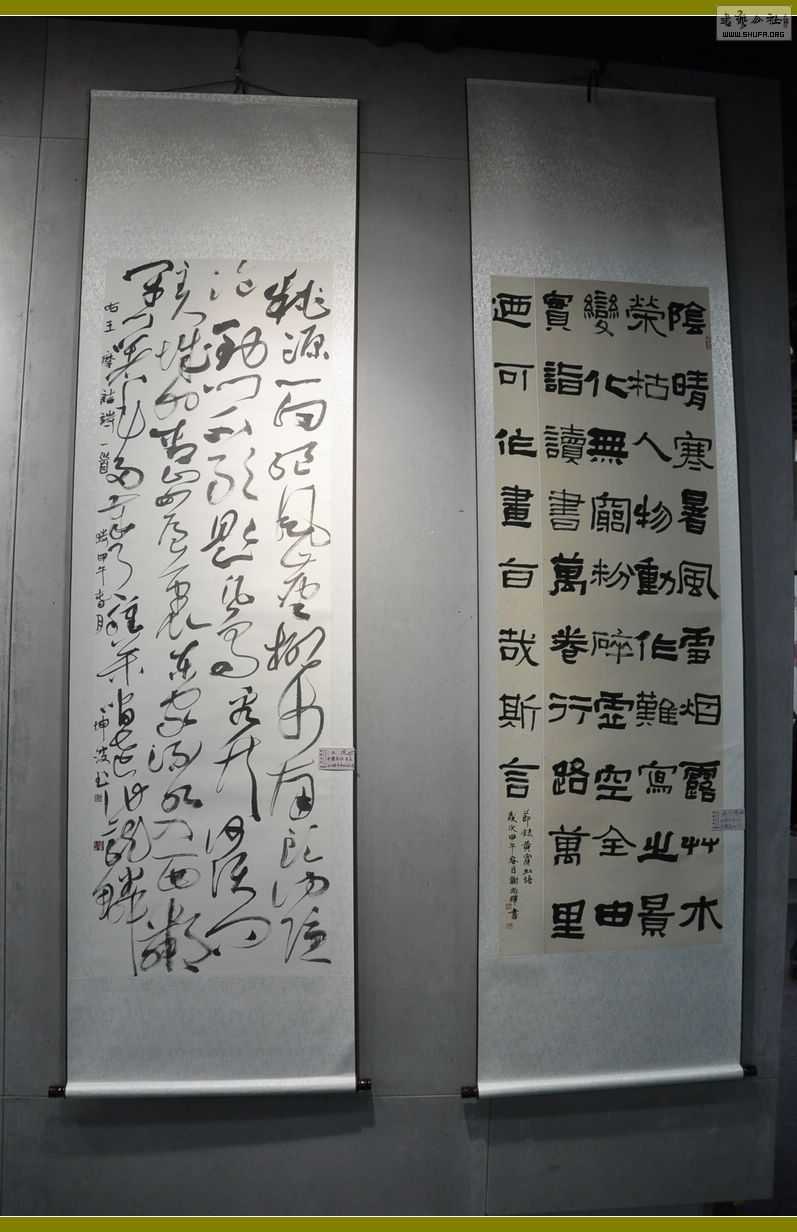 陰晴寒暑風雪烟露艸木
榮枯人物動作難寫之景
變化無窮粉碎虛空全由
實詣讀書萬卷行路萬里
迺可作畫旨哉斯言
節錄黃賓虹語
歲次甲午春月謝尚輝書
桃源一向絕風塵柳市南頭訪隱
淪到門不敢題凡鳥看竹何須問
主人城外青山如屋裏東家流水入西鄰
閉戶著書多歲月種松皆老作龍鱗
右王摩詰詩一首時甲午春月坤波書
書藝公社
WWW.SHUFA.ORG